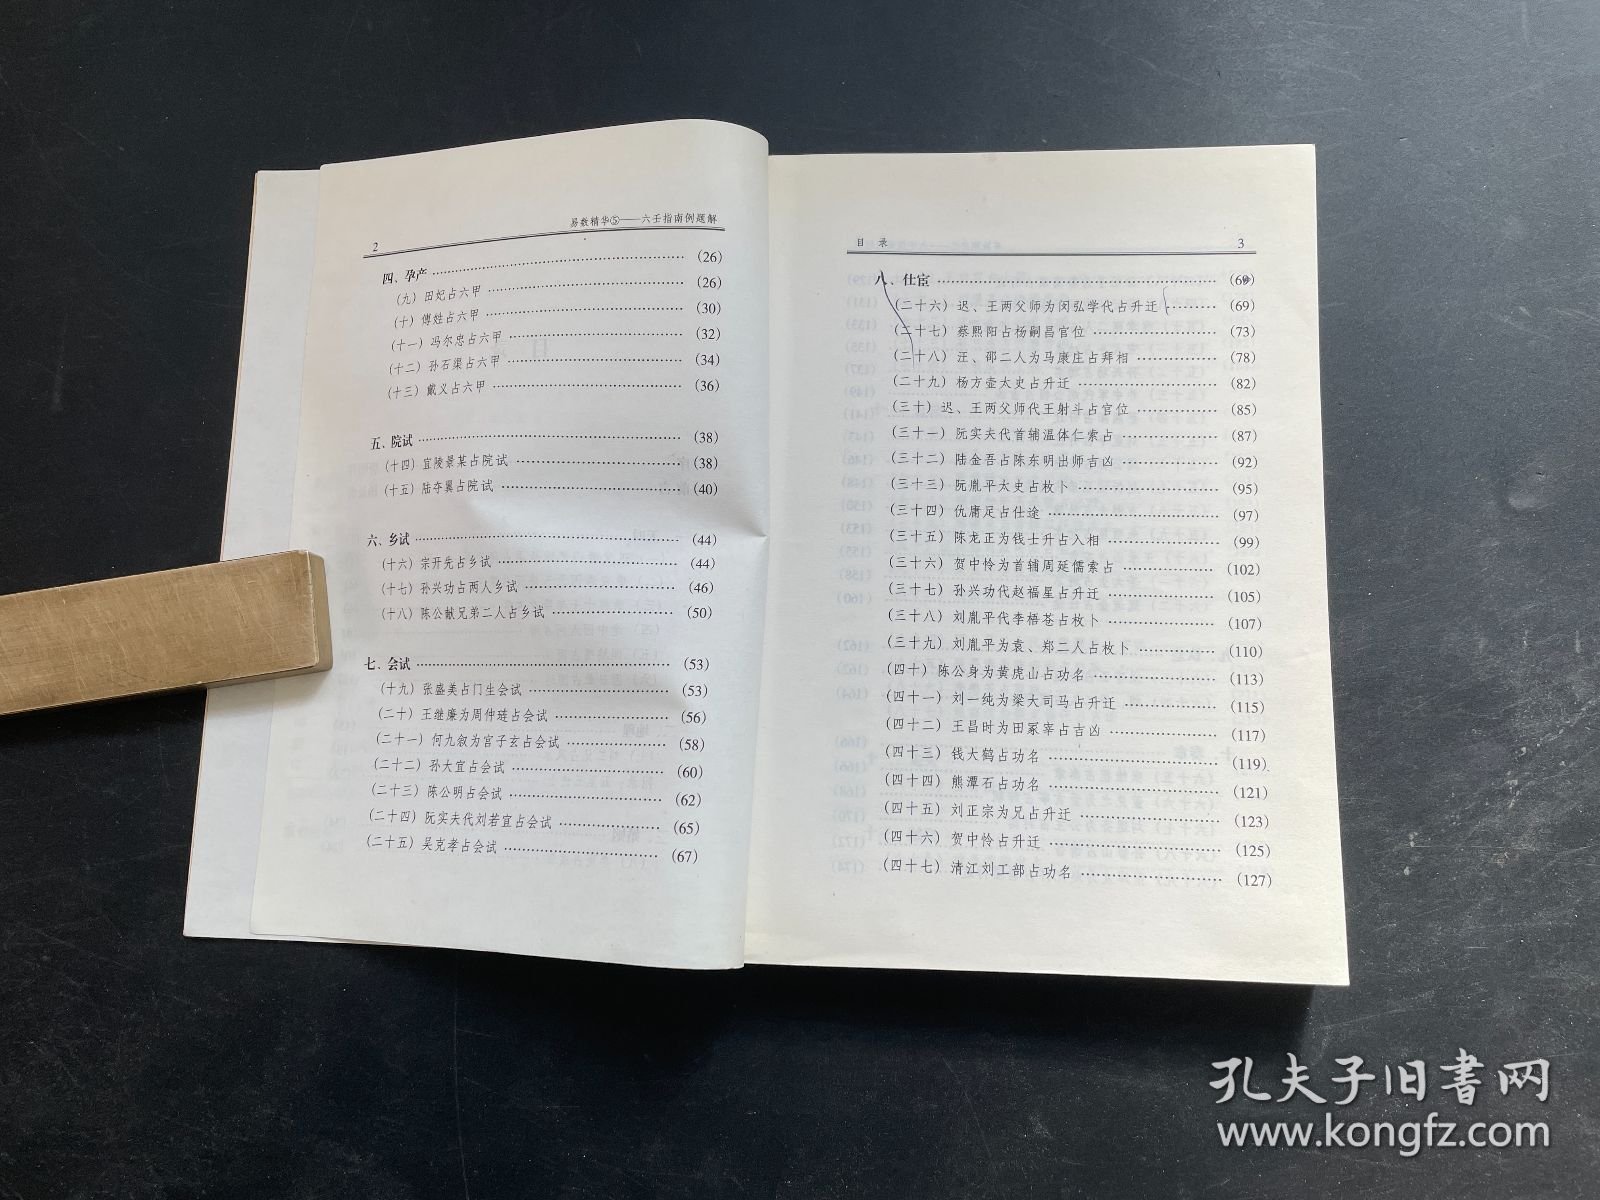 易数精华⑤——六壬指南例题解
2
四、孕产 (26)
(九) 田妃占六甲 (26)
(十) 傅姓占六甲 (30)
(十一) 冯尔忠占六甲 (32)
(十二) 孙石渠占六甲 (34)
(十三) 戴义占六甲 (36)
五、院试 (38)
(十四) 宜陵景某占院试 (38)
(十五) 陆夺翼占院试 (40)
六、乡试 (44)
(十六) 宗开先占乡试 (44)
(十七) 孙兴功占两人乡试 (46)
(十八) 陈公献兄弟二人占乡试 (50)
七、会试 (53)
(十九) 张盛美占门生会试 (53)
(二十) 王继廉为周仲琏占会试 (56)
(二十一) 何九叙为官子玄占会试 (58)
(二十二) 孙大宣占会试 (60)
(二十三) 陈公明占会试 (62)
(二十四) 阮实夫代刘若宜占会试 (65)
(二十五) 吴克孝占会试 (67)
目 录 3
八、仕宦 (69)
(二十六) 迟、王两父师为闵弘学代占升迁 (69)
(二十七) 蔡熙阳占杨嗣昌官位 (73)
(二十八) 汪、邵二人为马康庄占拜相 (78)
(二十九) 杨方壶太史占升迁 (82)
(三十) 迟、王两父师代王射斗占官位 (85)
(三十一) 阮实夫代首辅温体仁索占 (87)
(三十二) 陆金吾占陈东明出师吉凶 (92)
(三十三) 阮胤平太史占枚卜 (95)
(三十四) 仇庸足占仕途 (97)
(三十五) 陈龙正为钱士升占入相 (99)
(三十六) 贺中怜为首辅周延儒索占 (102)
(三十七) 孙兴功代赵福星占升迁 (105)
(三十八) 刘胤平代李梧苍占枚卜 (107)
(三十九) 刘胤平为袁、郑二人占枚卜 (110)
(四十) 陈公身为黄虎山占功名 (113)
(四十一) 刘一纯为梁大司马占升迁 (115)
(四十二) 王昌时为田冢宰占吉凶 (117)
(四十三) 钱大鹤占功名 (119)
(四十四) 熊潭石占功名 (121)
(四十五) 刘正宗为兄占升迁 (123)
(四十六) 贺中怜占升迁 (125)
(四十七) 清江刘工部占功名 (127)
孔夫子旧書网
www.kongfz.com